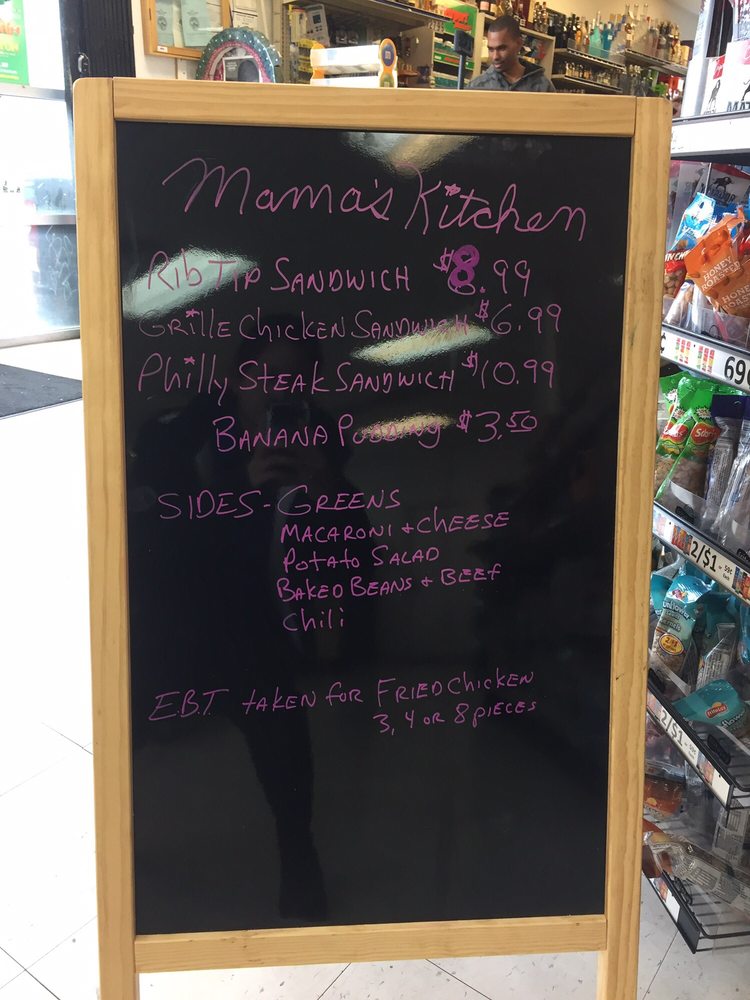 Mama's Kitchen
Rib Tip Sandwich $8.99
Grille Chicken Sandwich $6.99
Philly Steak Sandwich $10.99
Banana Pudding $3.50
SIDES - GREENS
MACARONI + CHEESE
Potato Salad
Baked Beans + Beef
Chili
E.B.T. taken for Fried Chicken
3, 4 or 8 pieces
HONEY ROASTED
69¢
2/$1
2/$1